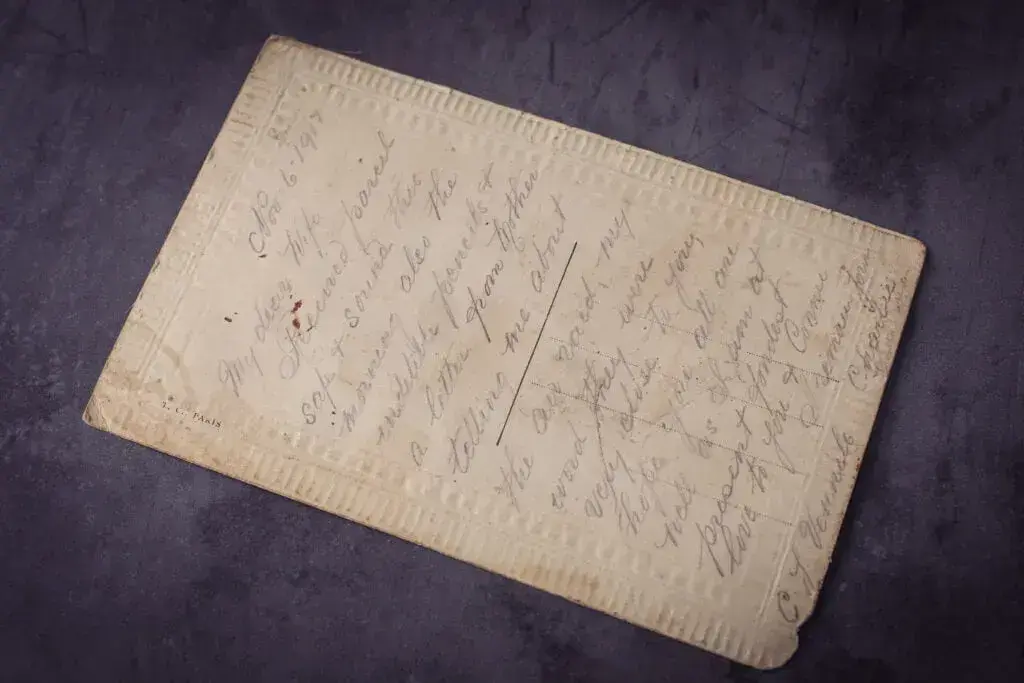 Nov 6 1917
My dear Wife
Received parcel
safe & sound this
morning also the
indelible pencils &
a letter from Mother
telling me about
the air raid, my
word they were
very close to you,
hope you all are
well as I am at
present fondest
love to you &
Connie
I remain Your
Charlie
C J Vennable
T. C., PARIS